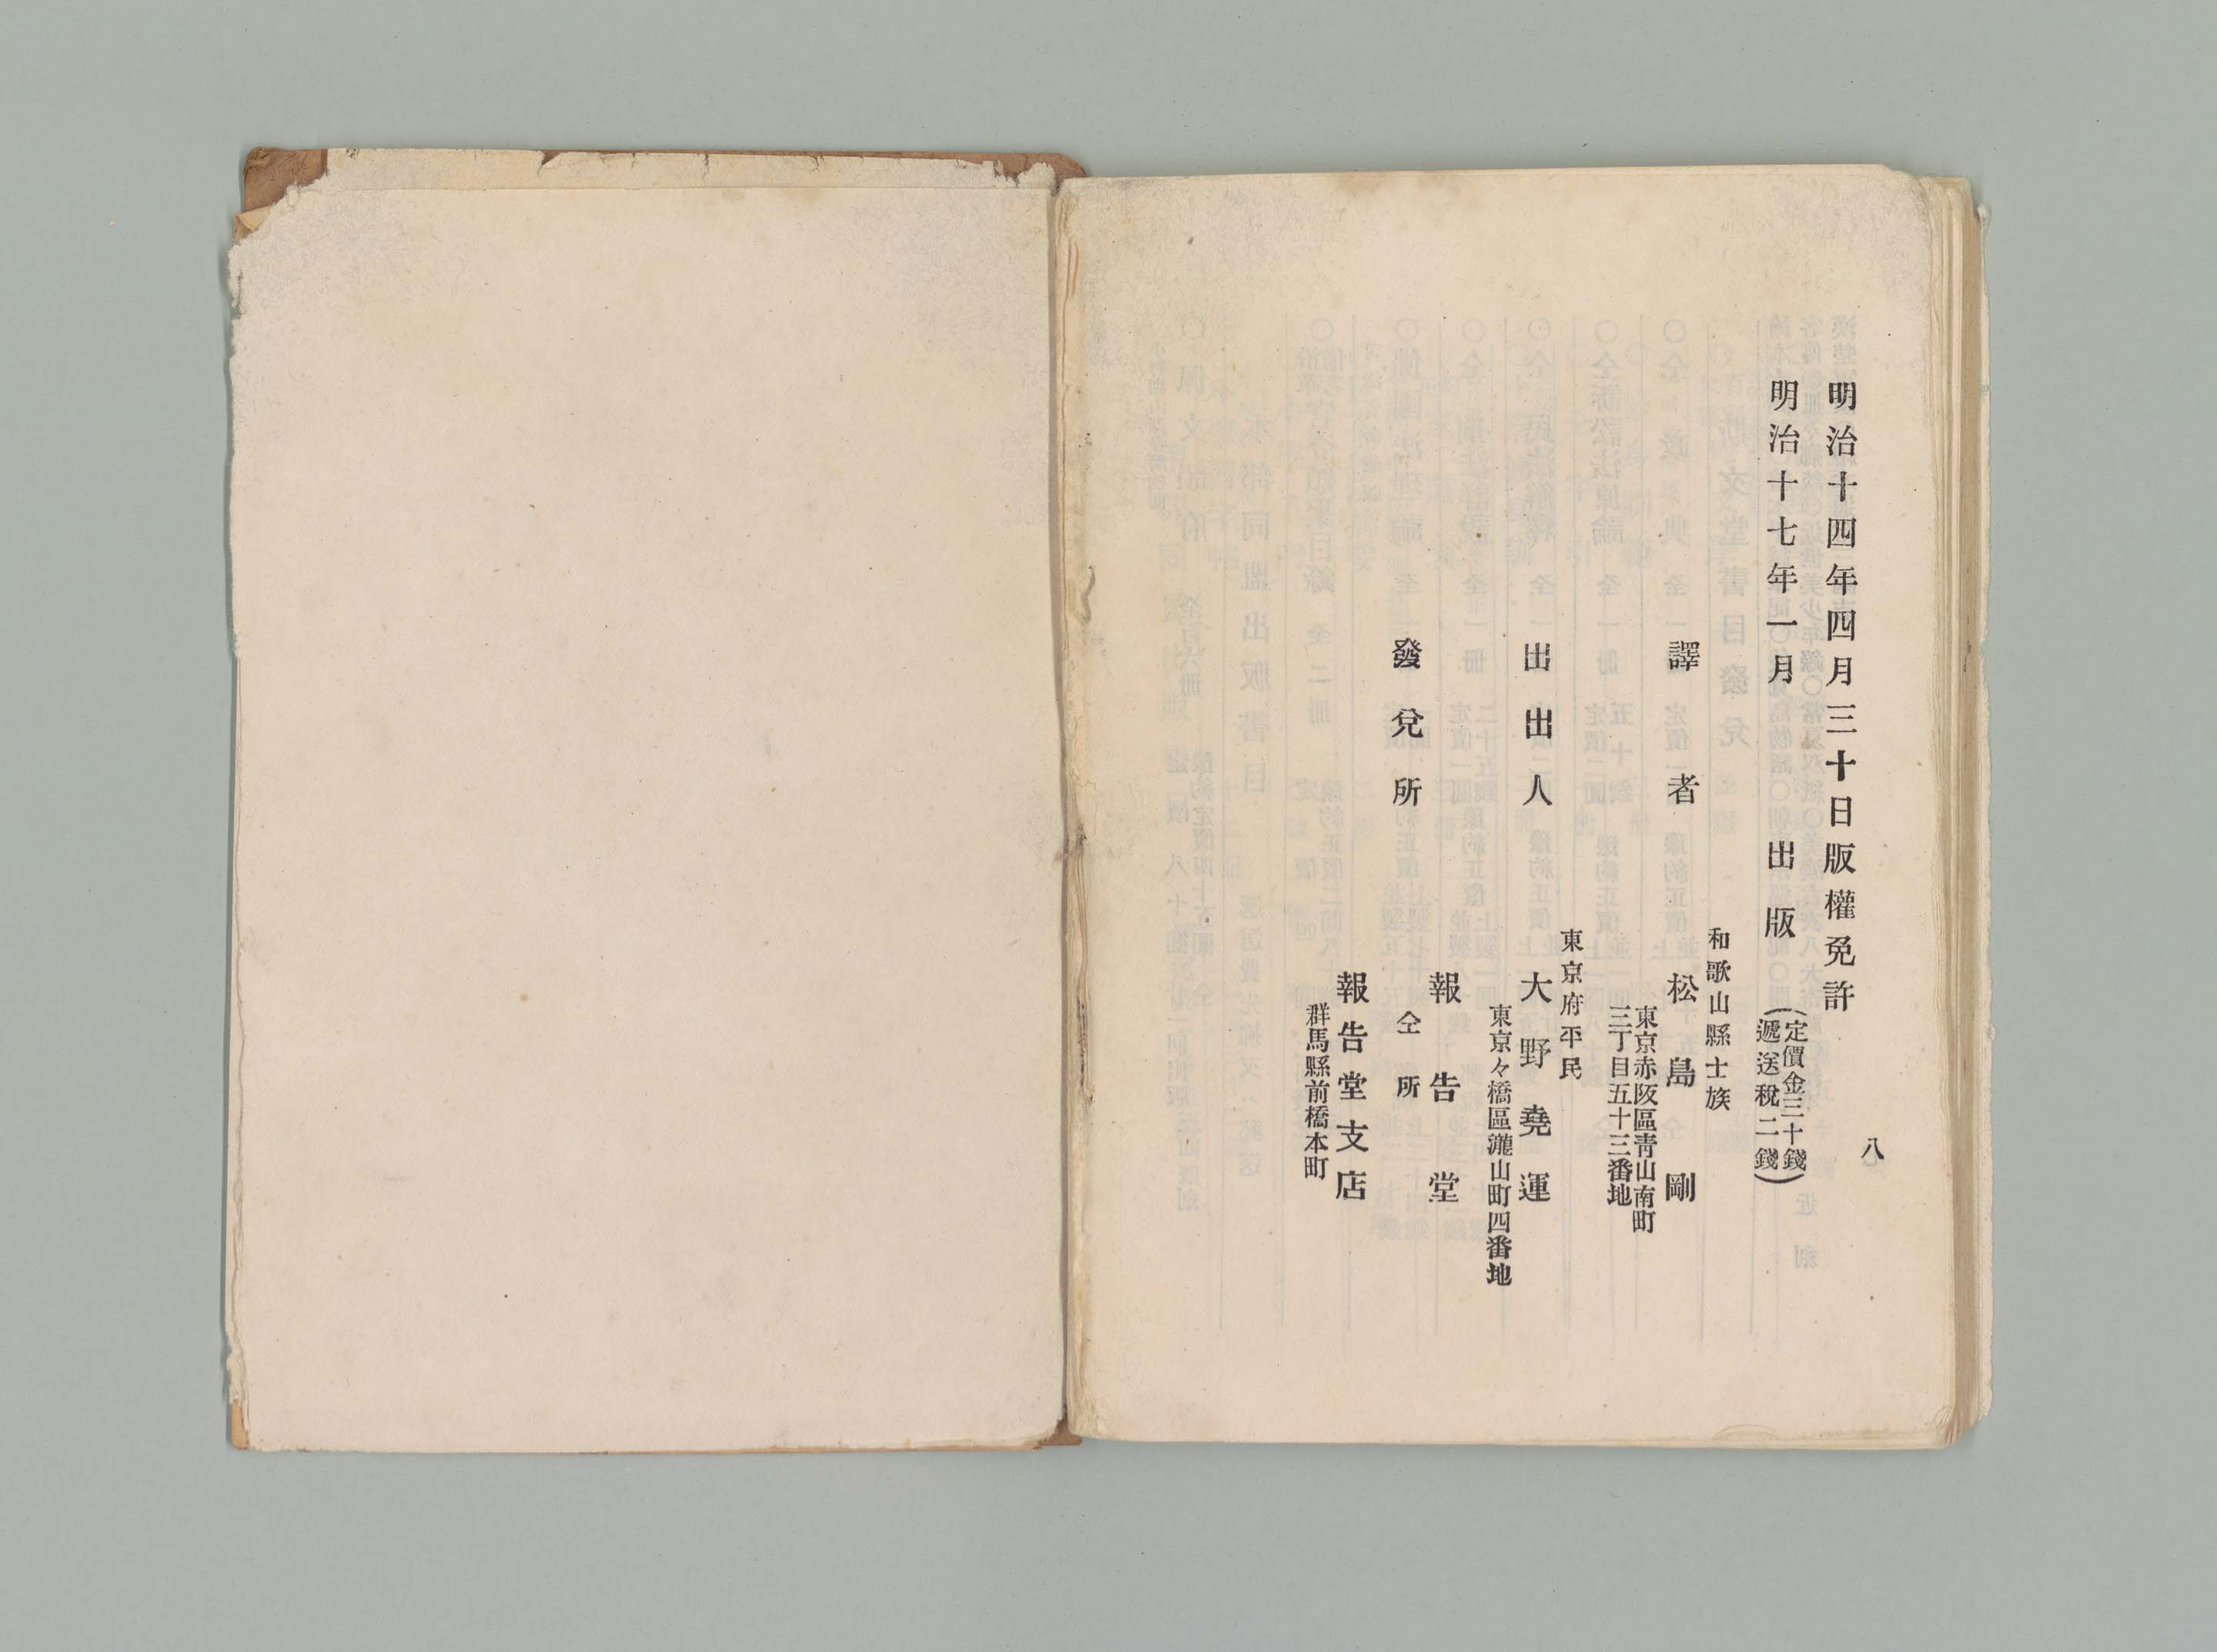 八
明治十四年四月三十日版權免許
明治十七年一月出版
(定價金三十錢)
(遞送稅二錢)
和歌山縣士族
譯者 松島剛
東京赤阪區靑山南町
三丁目五十三番地
東京府平民
出出人 大野堯運
東京々橋區瀧山町四番地
報告堂
發兌所 仝所
報告堂支店
群馬縣前橋本町